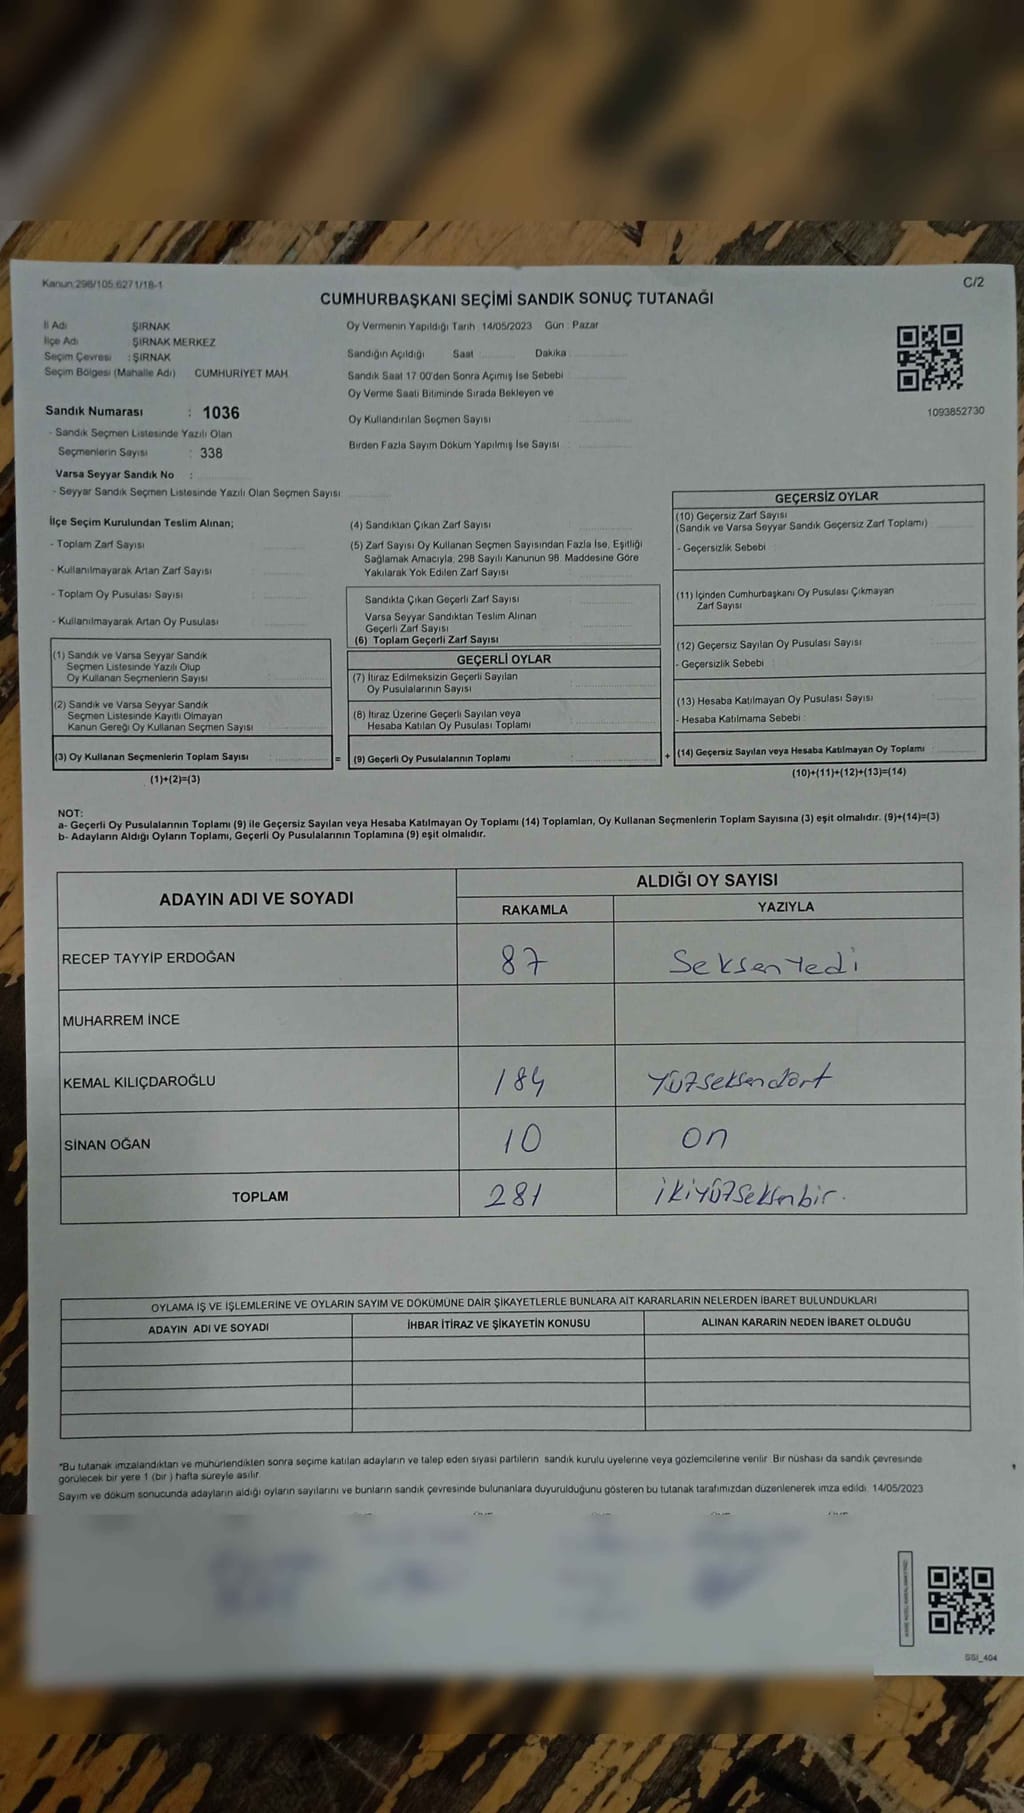 Kanun:298/105.6271/18-1
C/2
CUMHURBAŞKANI SEÇİMİ SANDIK SONUÇ TUTANAĞI
İl Adı ŞIRNAK
İlçe Adı ŞIRNAK MERKEZ
Seçim Çevresi : ŞIRNAK
Seçim Bölgesi (Mahalle Adı) CUMHURİYET MAH.
Sandık Numarası : 1036
- Sandık Seçmen Listesinde Yazılı Olan
Seçmenlerin Sayısı : 338
Varsa Seyyar Sandık No :
- Seyyar Sandık Seçmen Listesinde Yazılı Olan Seçmen Sayısı
Oy Vermenin Yapıldığı Tarih 14/05/2023 Gün : Pazar
Sandığın Açıldığı Saat Dakika
Sandık Saat 17 00'den Sonra Açımış İse Sebebi
Oy Verme Saati Bitiminde Sırada Bekleyen ve
Oy Kullandırılan Seçmen Sayısı
Birden Fazla Sayım Döküm Yapılmış İse Sayısı
1093852730
İlçe Seçim Kurulundan Teslim Alınan;
- Toplam Zarf Sayısı
- Kullanılmayarak Artan Zarf Sayısı
- Toplam Oy Pusulası Sayısı
- Kullanılmayarak Artan Oy Pusulası
(1) Sandık ve Varsa Seyyar Sandık
Seçmen Listesinde Yazılı Olup
Oy Kullanan Seçmenlerin Sayısı
(2) Sandık ve Varsa Seyyar Sandık
Seçmen Listesinde Kayıtlı Olmayan
Kanun Gereği Oy Kullanan Seçmen Sayısı
(3) Oy Kullanan Seçmenlerin Toplam Sayısı
(1)+(2)=(3)
(4) Sandıktan Çıkan Zarf Sayısı
(5) Zarf Sayısı Oy Kullanan Seçmen Sayısından Fazla İse, Eşitliği
Sağlamak Amacıyla, 298 Sayılı Kanunun 98. Maddesine Göre
Yakılarak Yok Edilen Zarf Sayısı
Sandıkta Çıkan Geçerli Zarf Sayısı
Varsa Seyyar Sandıktan Teslim Alınan
Geçerli Zarf Sayısı
(6) Toplam Geçerli Zarf Sayısı
GEÇERLİ OYLAR
(7) İtiraz Edilmeksizin Geçerli Sayılan
Oy Pusulalarının Sayısı
(8) İtiraz Üzerine Geçerli Sayılan veya
Hesaba Katılan Oy Pusulası Toplamı
= (9) Geçerli Oy Pusulalarının Toplamı
GEÇERSİZ OYLAR
(10) Geçersiz Zarf Sayısı
(Sandık ve Varsa Seyyar Sandık Geçersiz Zarf Toplamı)
- Geçersizlik Sebebi
(11) İçinden Cumhurbaşkanı Oy Pusulası Çıkmayan
Zarf Sayısı
(12) Geçersiz Sayılan Oy Pusulası Sayısı
- Geçersizlik Sebebi
(13) Hesaba Katılmayan Oy Pusulası Sayısı
- Hesaba Katılmama Sebebi
+ (14) Geçersiz Sayılan veya Hesaba Katılmayan Oy Toplamı
(10)+(11)+(12)+(13)=(14)
NOT:
a- Geçerli Oy Pusulalarının Toplamı (9) ile Geçersiz Sayılan veya Hesaba Katılmayan Oy Toplamı (14) Toplamları, Oy Kullanan Seçmenlerin Toplam Sayısına (3) eşit olmalıdır. (9)+(14)=(3)
b- Adayların Aldığı Oyların Toplamı, Geçerli Oy Pusulalarının Toplamına (9) eşit olmalıdır.
ADAYIN ADI VE SOYADI
ALDIĞI OY SAYISI
RAKAMLA YAZIYLA
RECEP TAYYİP ERDOĞAN 87 Seksen Yedi
MUHARREM İNCE
KEMAL KILIÇDAROĞLU 184 Yüzseksendört
SİNAN OĞAN 10 on
TOPLAM 281 ikiyüzseksenbir.
OYLAMA İŞ VE İŞLEMLERİNE VE OYLARIN SAYIM VE DÖKÜMÜNE DAİR ŞİKAYETLERLE BUNLARA AİT KARARLARIN NELERDEN İBARET BULUNDUKLARI
ADAYIN ADI VE SOYADI İHBAR İTİRAZ VE ŞİKAYETİN KONUSU ALINAN KARARIN NEDEN İBARET OLDUĞU
*Bu tutanak imzalandıktan ve mühürlendikten sonra seçime katılan adayların ve talep eden siyasi partilerin sandık kurulu üyelerine veya gözlemcilerine verilir Bir nüshası da sandık çevresinde
görülecek bir yere 1 (bir ) hafta süreyle asılır
Sayım ve döküm sonucunda adayların aldığı oyların sayılarını ve bunların sandık çevresinde bulunanlara duyurulduğunu gösteren bu tutanak tarafımızdan düzenlenerek imza edildi. 14/05/2023
SSI_404